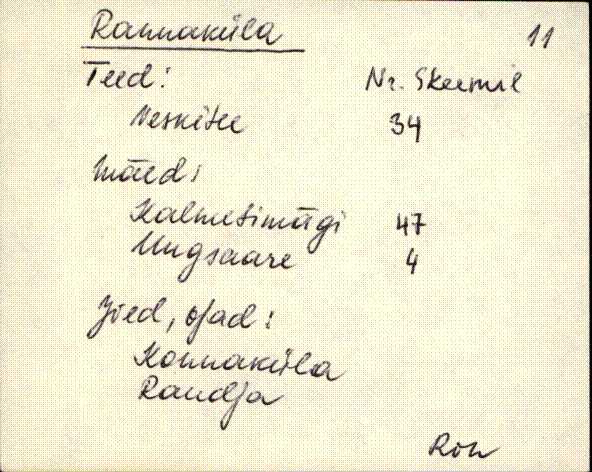 Rannaküla 11
Teed: Nr. Skeemil
Veskitee 34
Mäed:
Kalmetimägi 47
Ungsaare 4
Jõed, ojad:
Konnaküla
Randja
Rõu